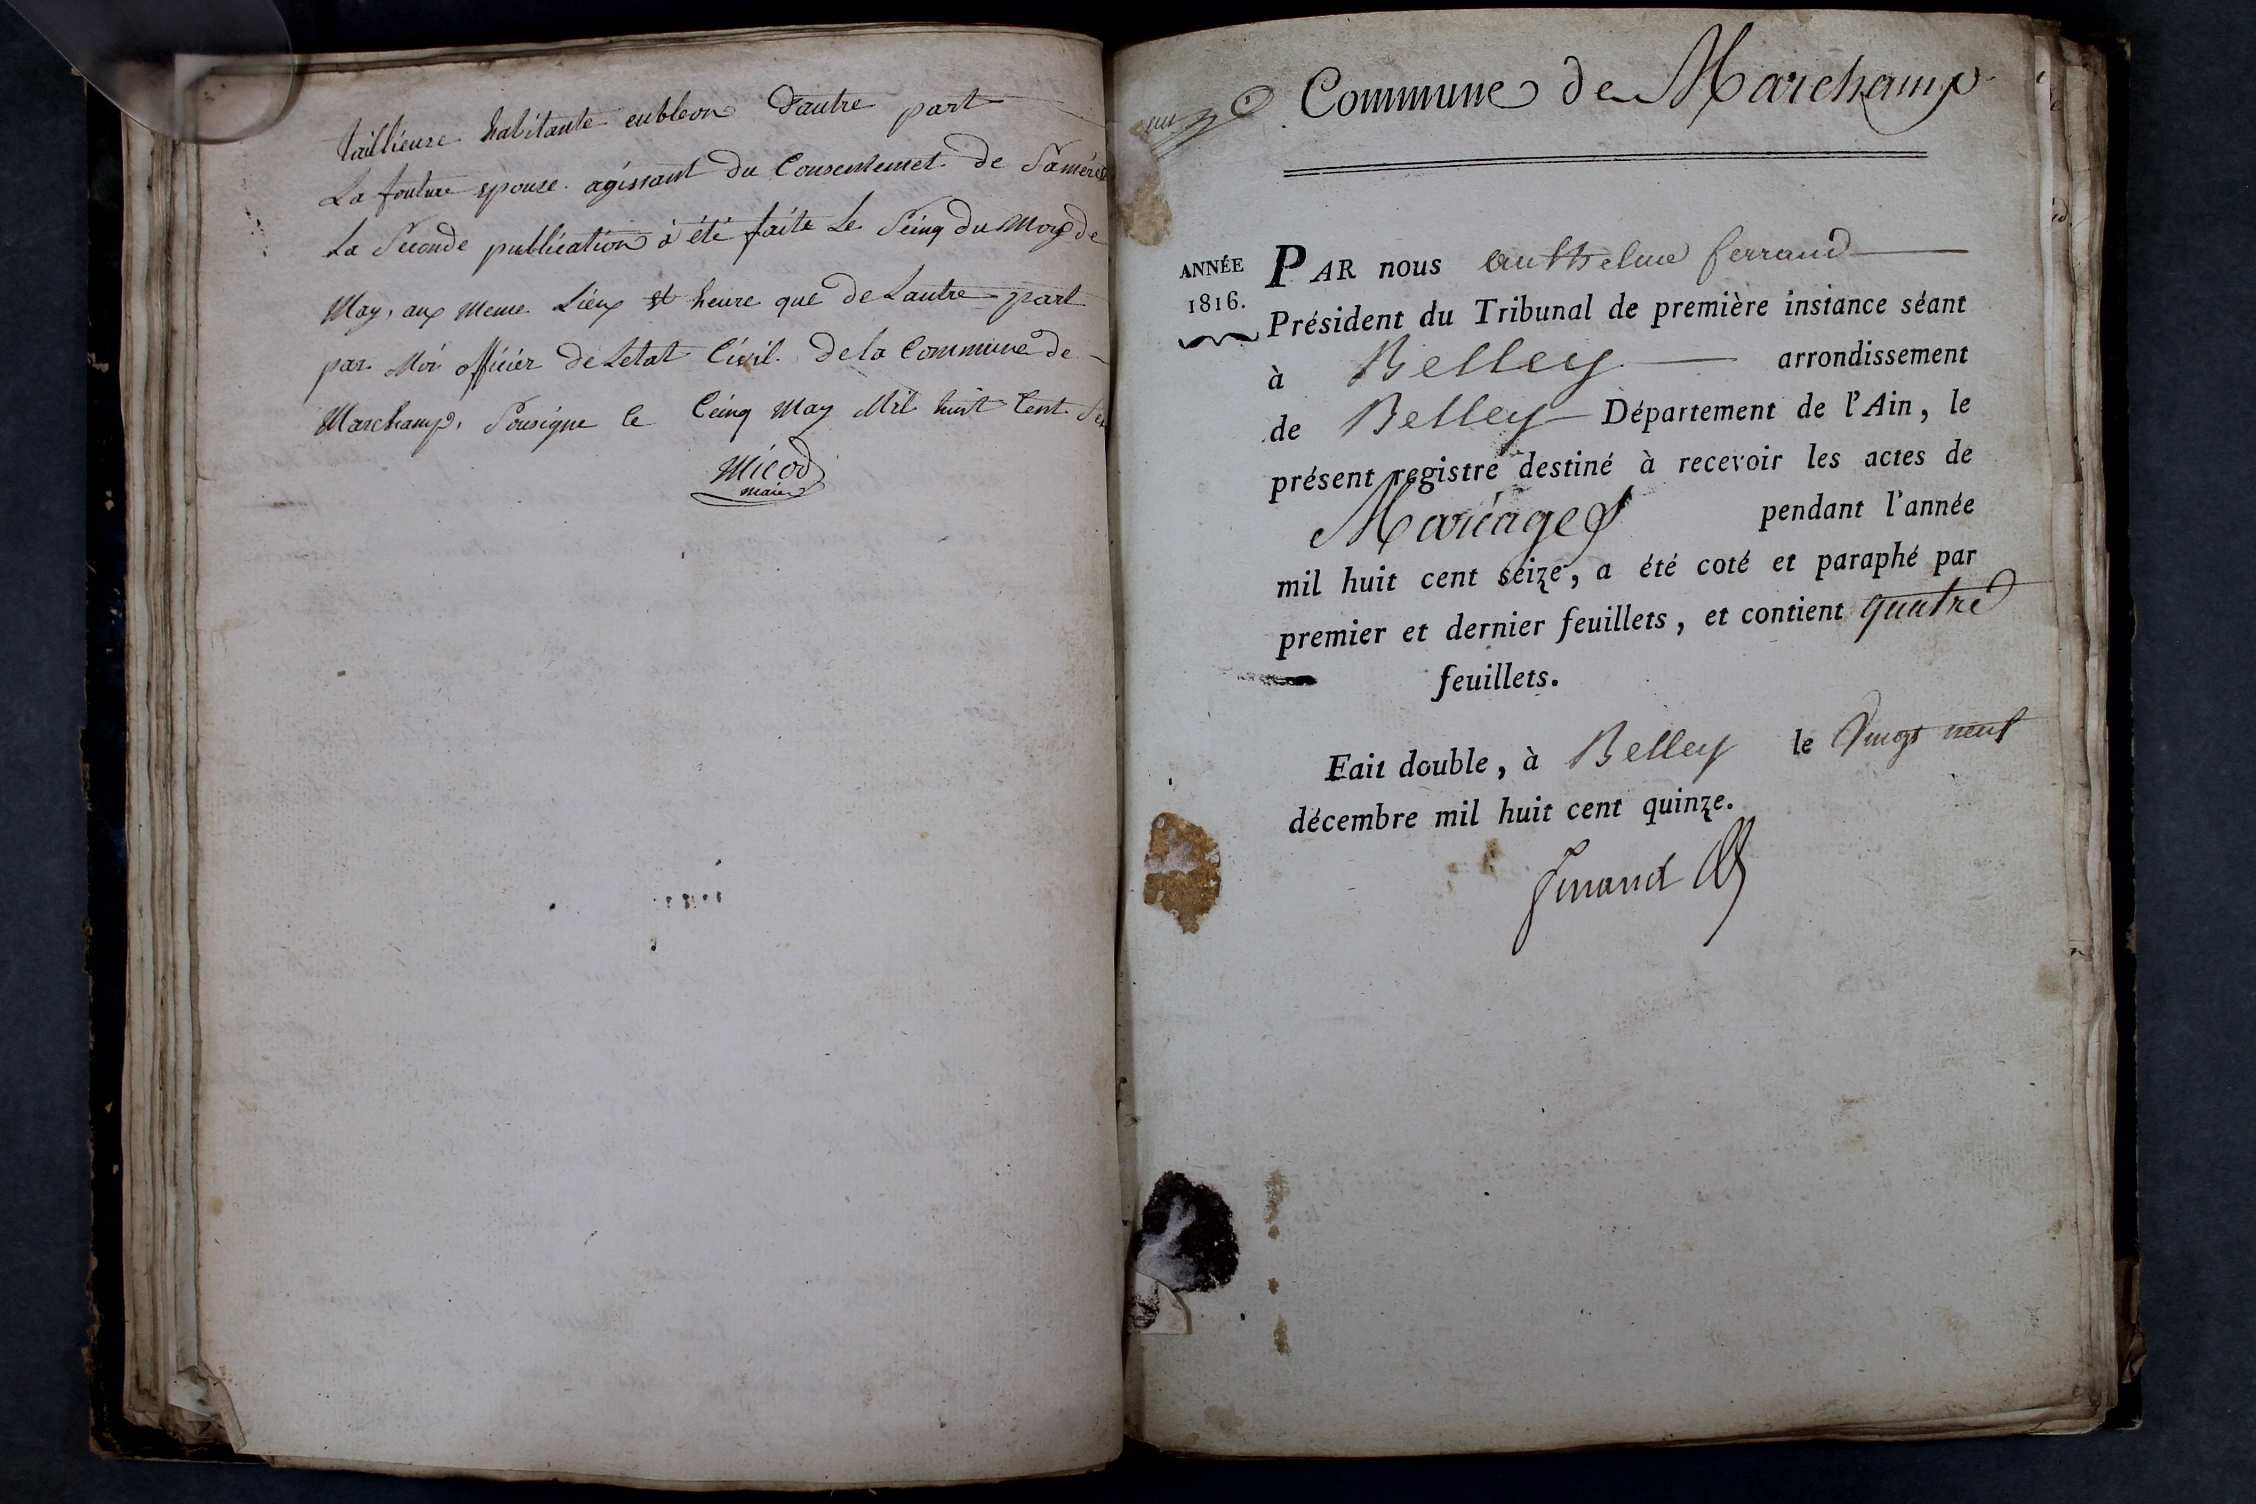 tailleuse habitante eubleon d'autre part
La fouture epouse agissant du Consentemet de Samère
La Seconde publication à été faite Le Seinq du Moys de
May, aux meme Lieux et heure que de Lautre part
par Moi officier de Letat Civil de la Commune de
Marchamp, Sousigne le Cinq May Mil huit Cent
Micod
maire
Commune de Marchamp
ANNÉE
1816.
PAR nous anthelme ferrand
Président du Tribunal de première instance séant
à Belley arrondissement
de Belley Département de l'Ain, le
présent registre destiné à recevoir les actes de
Mariages pendant l'année
mil huit cent seize, a été coté et paraphé par
premier et dernier feuillets, et contient quatre
feuillets.
Fait double, à Belley le Vingt neuf
décembre mil huit cent quinze.
ferrand